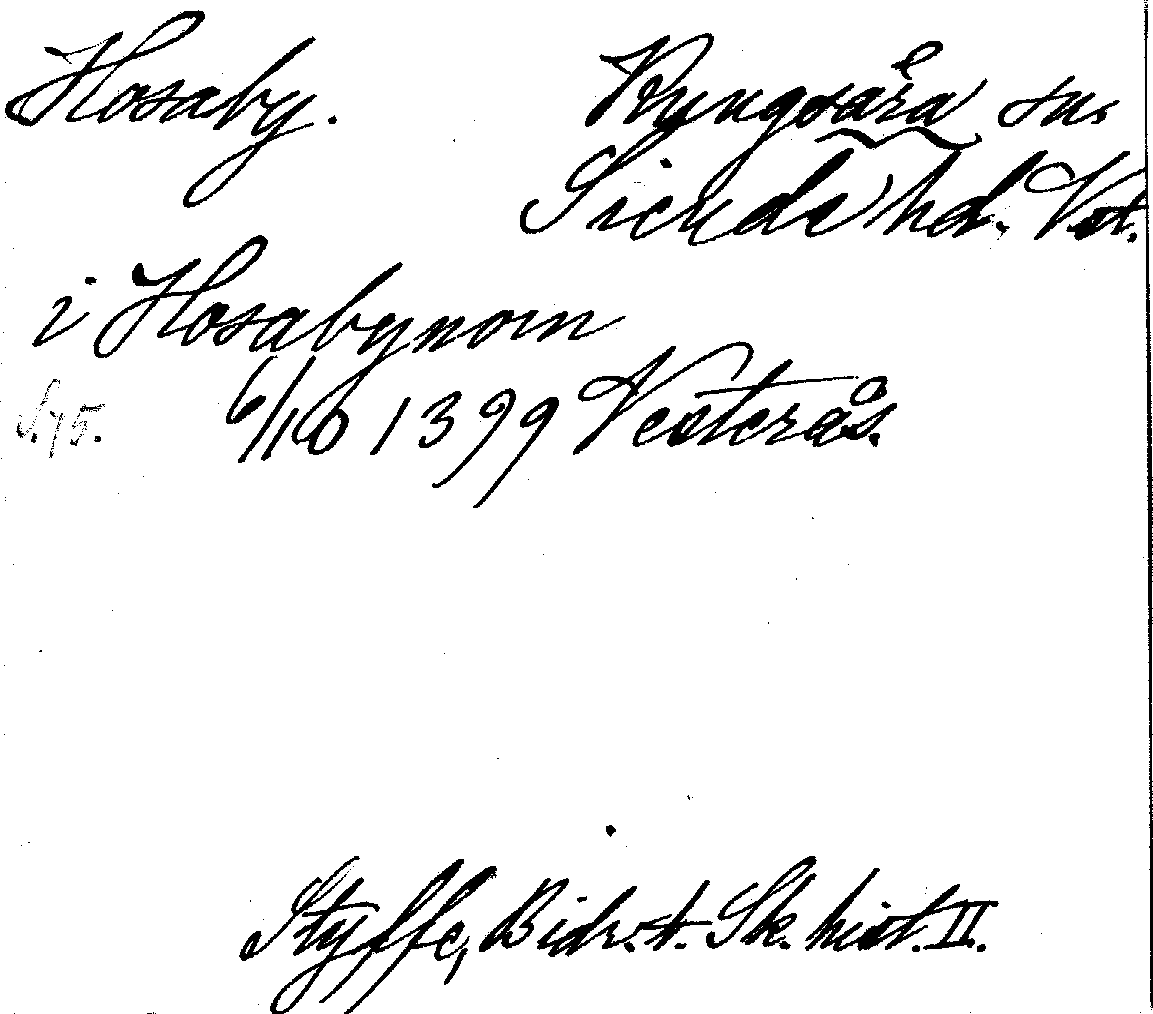 Hosaby. Kyngsåra sn.
Siende hd. Vst.
i Hosabynom
S. 75. 6/10 1399 Vesterås.
Styffe, Bidr. t. Sk. hist. II.